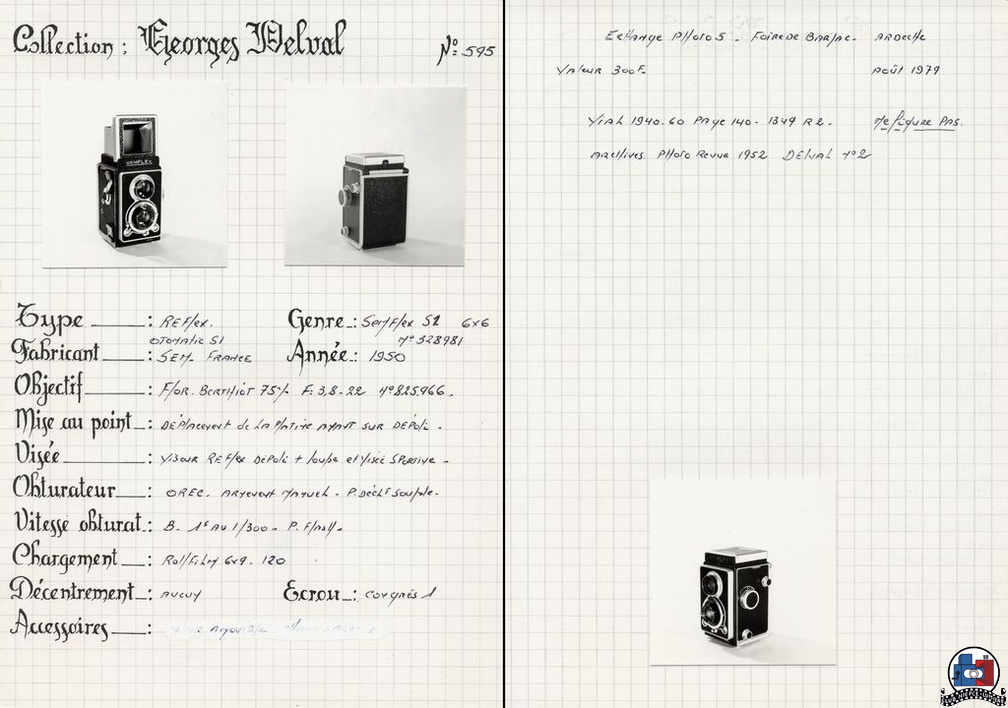 Collection : Georges Delval
N° : 595
SEMFLEX
Type : REFlex. Genre : SemFlex S1 6x6
OTOMATIC S1 N° 328981
Fabricant : SEM. FRANCE Année : 1950
Objectif : FLOR. BERTHIOT 75% F: 3,8-22 N° 825.966.
Mise au point : DEPlacement de LA PlaTine AVANT SUR DEPoli -
Visée : Viseur REFlex DEPoli + loupe et Visée SPortive -
Obturateur : OREC. ARmement MAnuel - P. Décht Souple-
Vitesse obturat. : B. 1s AU 1/300 - P. FlAsh-
Chargement : Roll Film 6x9. 120
Décentrement : AUCUN Ecrou : Congrès 1
Accessoires :
EcHAnge PHoto 5 - Foire de BARJAC- ARDECHE
VALeur 300F. Août 1979
ViAL 1940.60 PAge 140 - 1349 R2. Ne Figure PAS.
ARcHives. PHoto Revue 1952 DELVAL N° 2